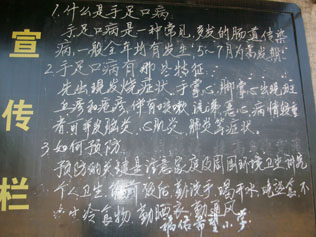 宣传栏
1.什么是手足口病
手足口病是一种常见多发的肠道传染
病,一般全年均有发生,5~7月为高发期
2.手足口病有那些特征:
先出现发烧症状,手掌心、脚掌心出现斑
丘疹和疱疹,伴有咳嗽、流涕、恶心,病情较重
者可并发脑炎、心肌炎、肺炎等症状。
3.如何预防
预防的关键是注意家庭及周围环境卫生,讲究
个人卫生,饭前饭后勤洗手,喝开水,不
冷食物,勤晒衣,勤通风
希望小学